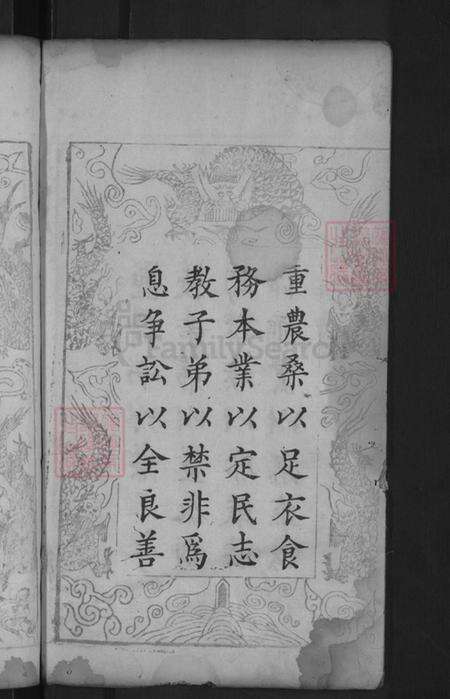 重農桑以足衣食
務本業以定民志
教子弟以禁非爲
息争訟以全良善
FamilySearch